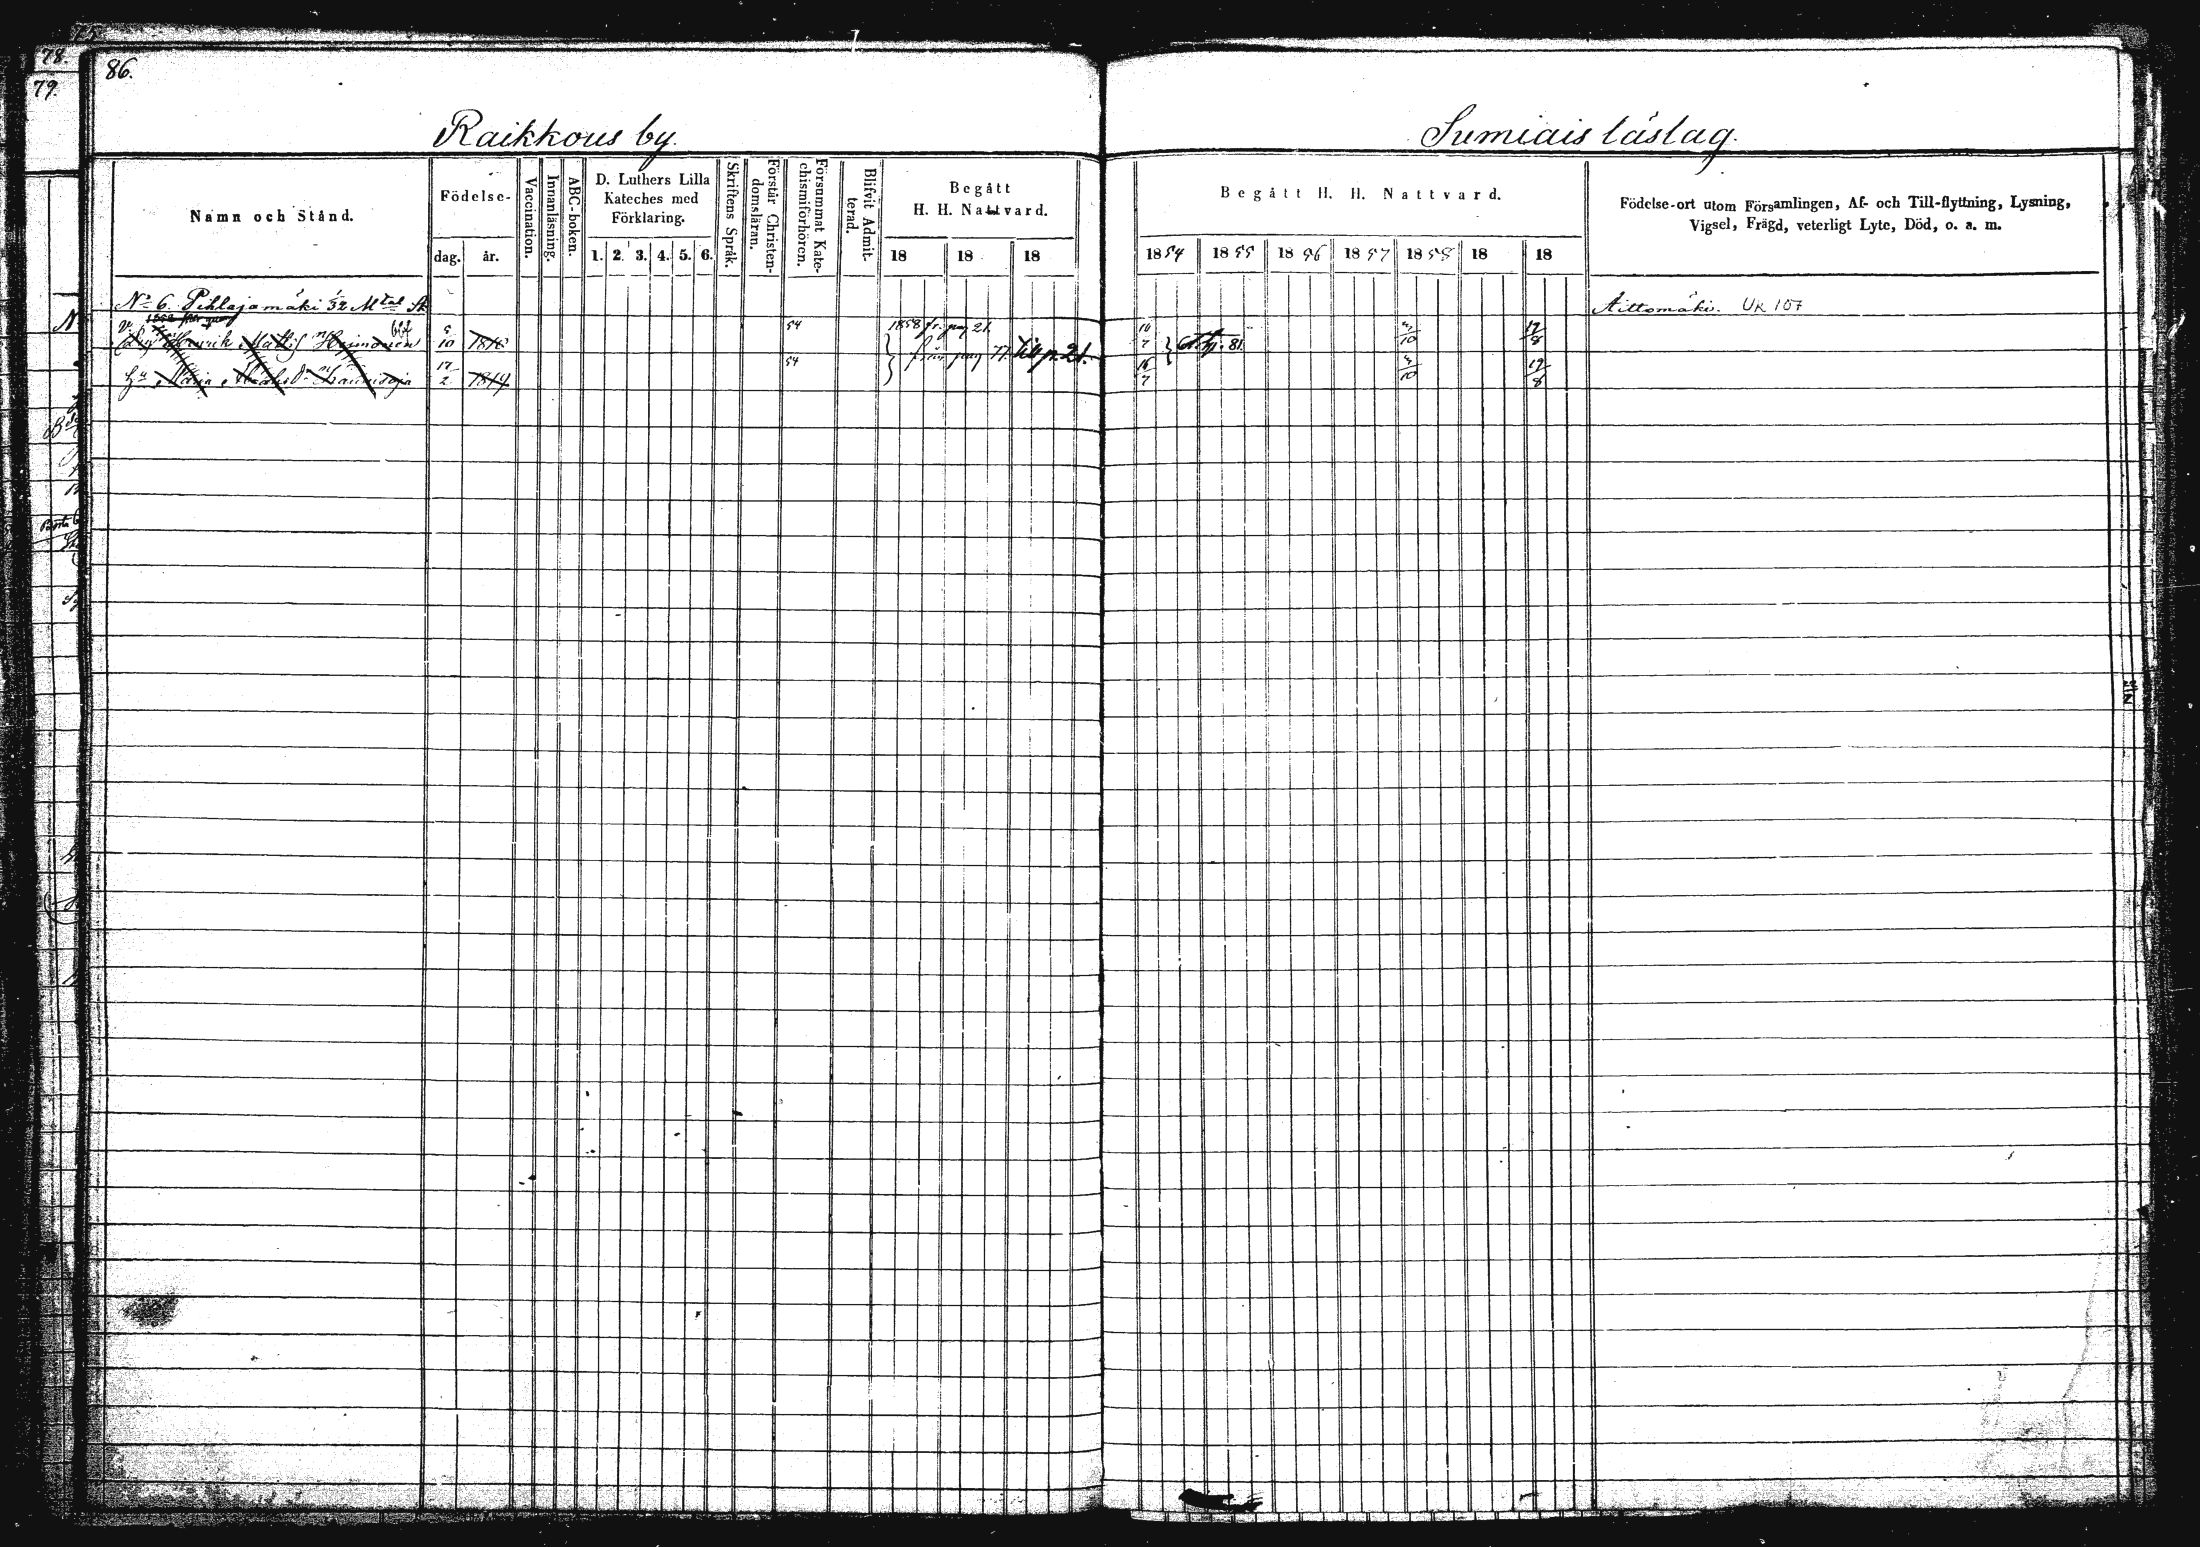 75.
78.
79.
86.
Raikkous by.
Sumiais läslag.
Namn och Stånd.
Födelse-
dag. år.
Vaccination.
Innanläsning.
ABC-boken.
D. Luthers Lilla
Kateches med
Förklaring.
1. 2. 3. 4. 5. 6.
Skriftens Språk.
Förstår Christen-
domsläran.
Försummat Kate-
chismiförhören.
Blifvit Admit-
terad.
Begått
H. H. Nattvard.
18 18 18
Begått H. H. Nattvard.
1854 1855 1856 1857 1858 18 18
Födelse-ort utom Församlingen, Af- och Till-flyttning, Lysning,
Vigsel, Frägd, veterligt Lyte, Död, o. a. m.
No 6 Pihlajamäki 1/32 Mtal
Aittomäki. UK 107
Henrik Matts Heimonen
5/10
54
1858 fr. pag 21.
från pag 77. till p. 21.
10/7
81.
3/10
17/8
Hu Maria
17/2 1814
54
16/7
3/10
17/8